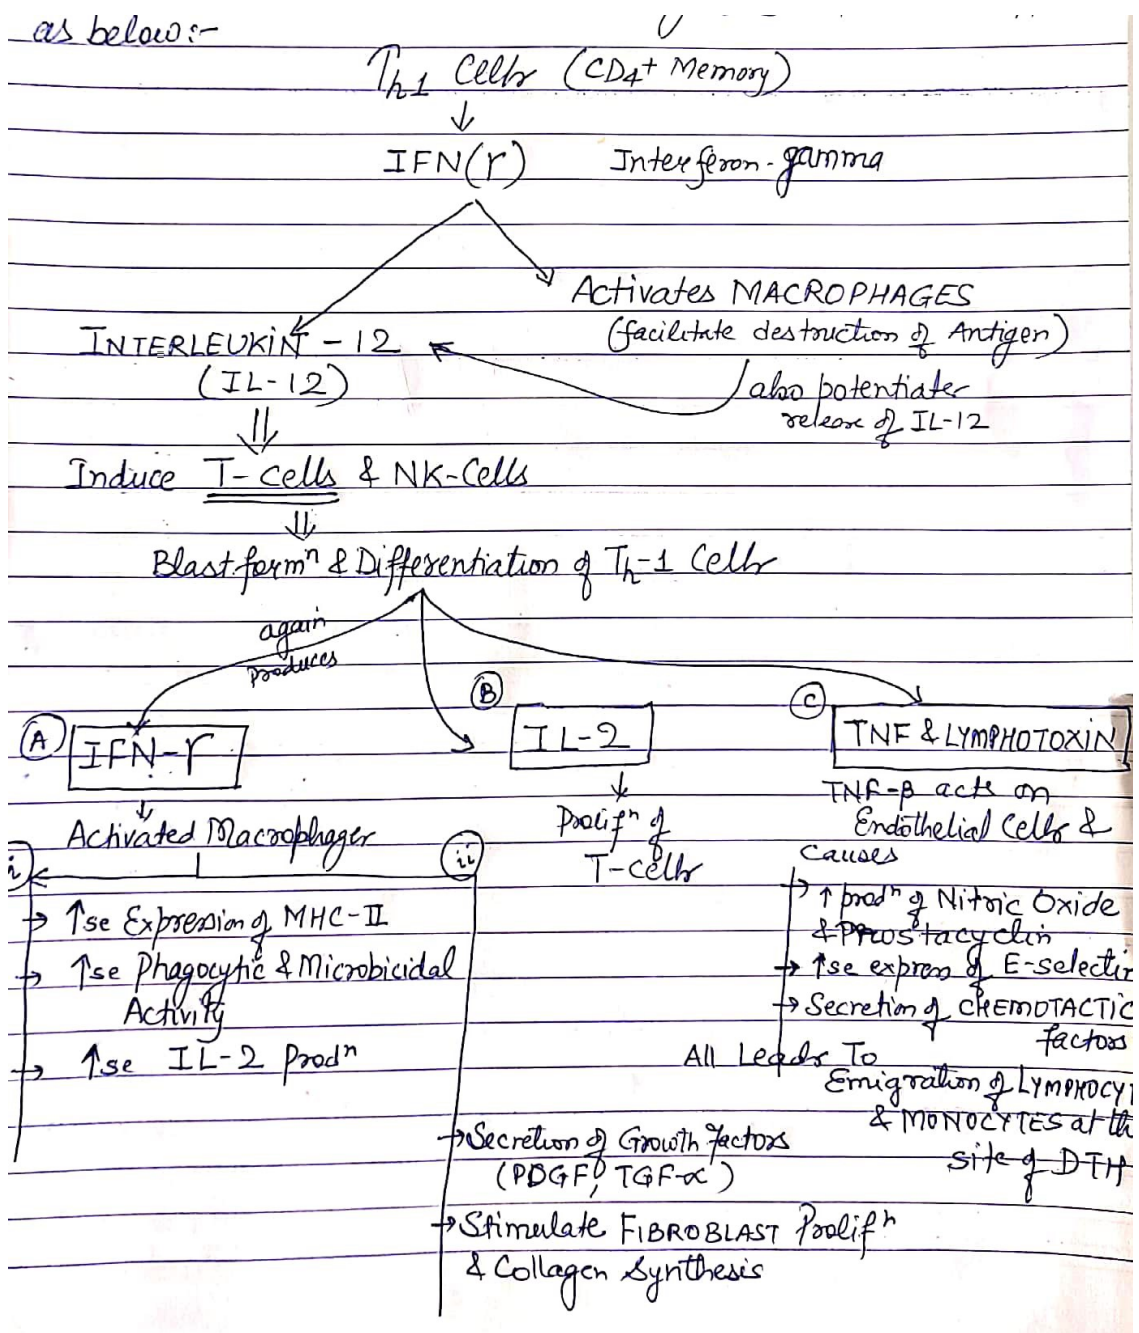 as below:-
Th1 Cells (CD4+ Memory)
IFN(r) Interferon-gamma
Activates MACROPHAGES
(facilitate destruction of Antigen)
INTERLEUKIN-12
(IL-12)
also potentiates
release of IL-12
Induce T-cells & NK-Cells
Blast formⁿ & Differentiation of Th-1 Cells
again
produces
A IFN-r
B IL-2
C TNF & LYMPHOTOXIN
Activated Macrophages
i
↑se Expression of MHC-II
↑se Phagocytic & Microbicidal
Activity
↑se IL-2 Prodⁿ
ii
Secretion of Growth factors
(PDGF, TGF-α)
Stimulate FIBROBLAST Prolifⁿ
& Collagen Synthesis
Prolifⁿ of
T-cells
TNF-β acts on
Endothelial Cells &
causes
↑ prodⁿ of Nitric Oxide
& Prostacyclin
↑se express of E-selectin
Secretion of CHEMOTACTIC
factors
All Leads To
Emigration of LYMPHOCYT
& MONOCYTES at th
site of DTH